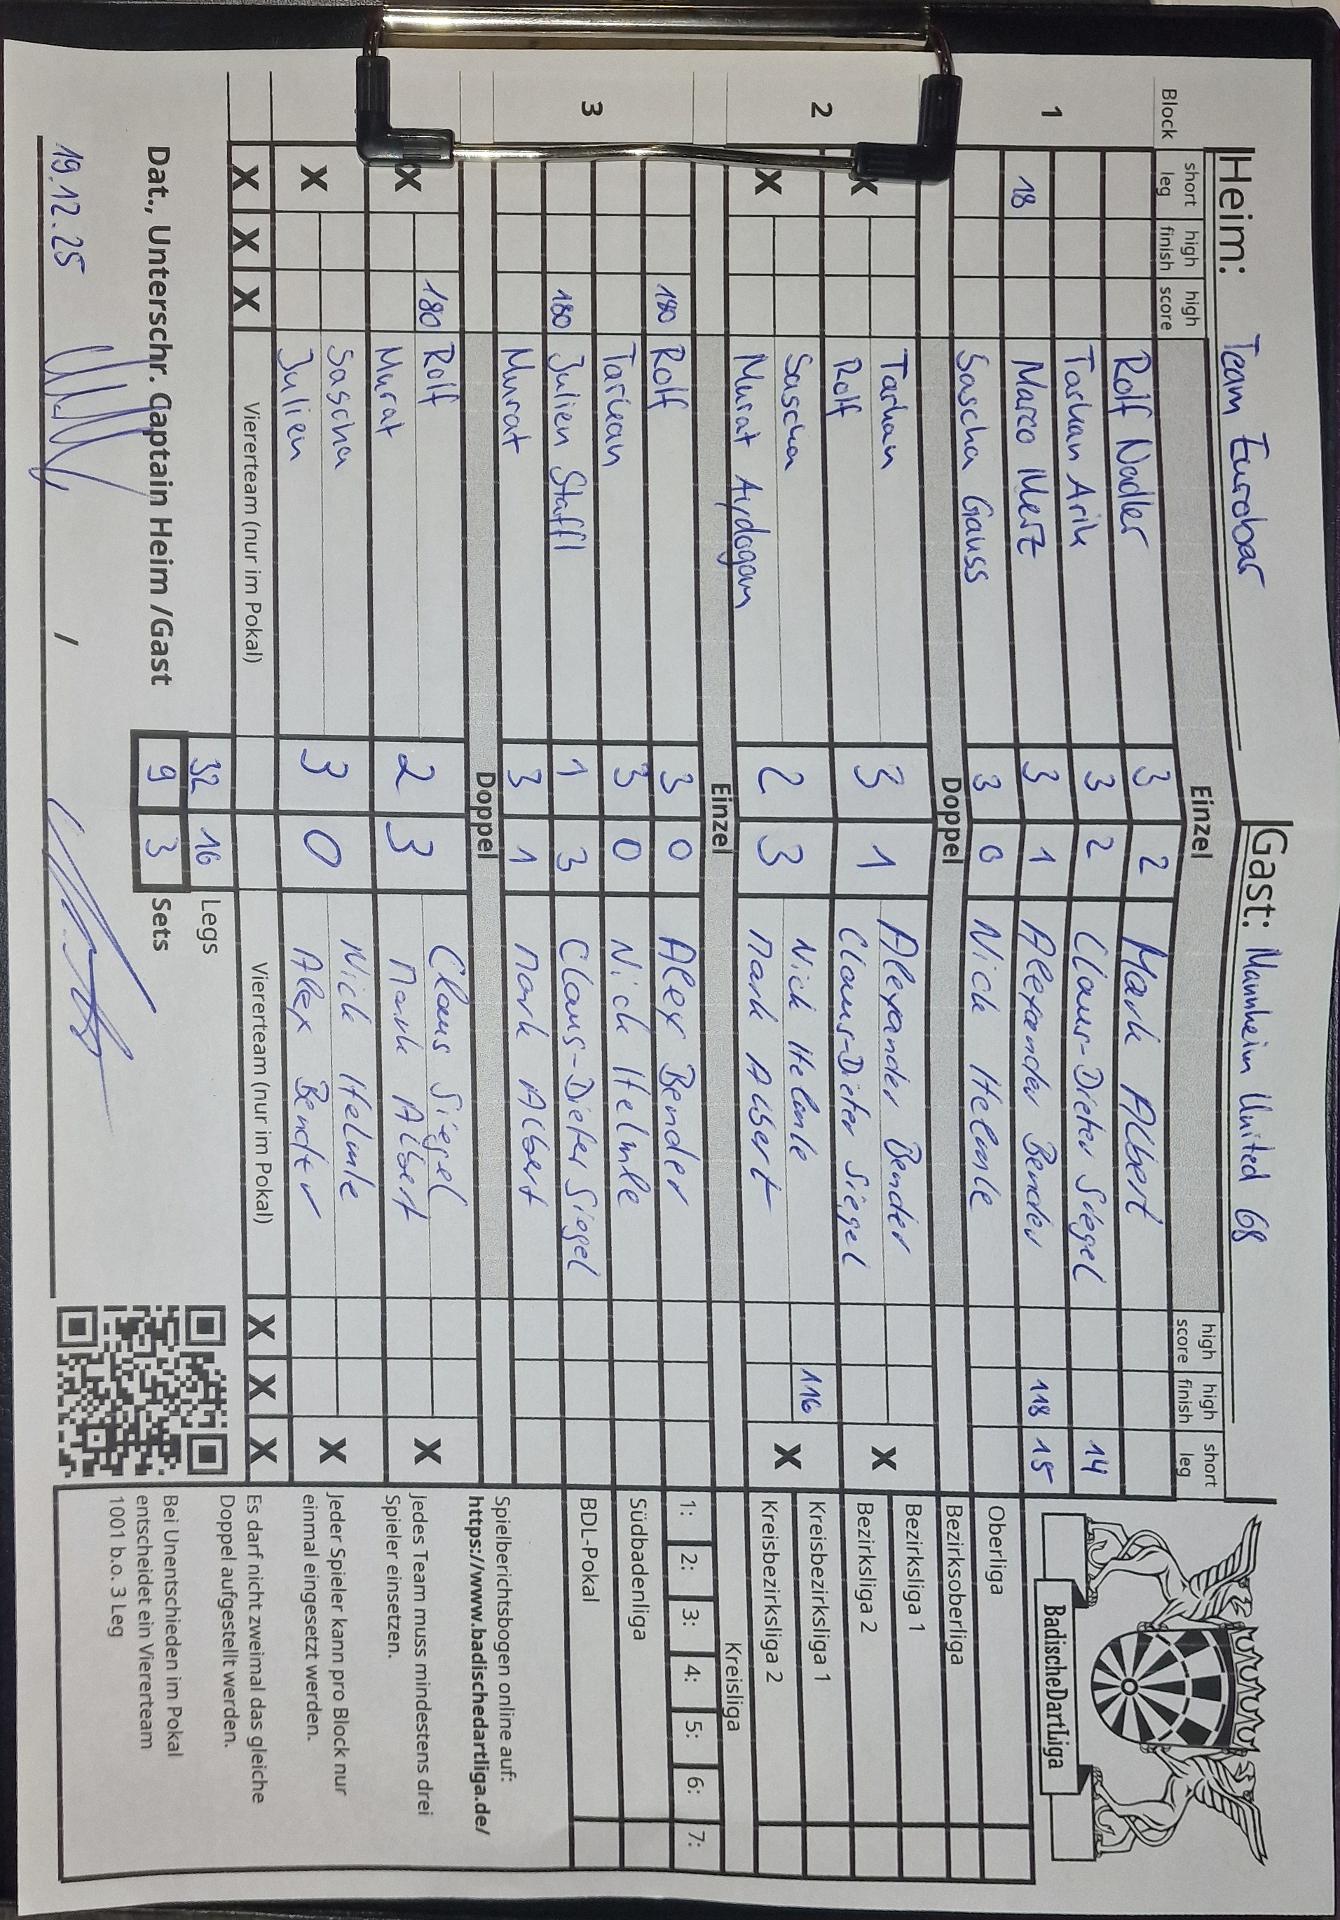 Heim: Team Eurobar Gast: Mannheim United 68
Block short leg high finish high score Einzel high score high finish short leg
1
Rolf Nadler 3 2 Mark Albert
Tarkan Arik 3 2 Claus-Dieter Siegel 14
18 Marco Merz 3 1 Alexander Bender 118 15
Sascha Gauss 3 0 Nick Helmle
Doppel
2
X Tarkan 3 1 Alexander Bender X
Rolf Claus-Dieter Siegel
X Sascha 2 3 Nick Helmle 116 X
Murat Aydogan Mark Albert
Einzel
3
180 Rolf 3 0 Alex Bender
Tarkan 3 0 Nick Helmle
180 Julien Staffl 1 3 Claus-Dieter Siegel
Murat 3 1 Mark Albert
Doppel
X 180 Rolf 2 3 Claus Siegel X
Murat Mark Albert
X Sascha 3 0 Nick Helmle X
Julien Alex Bender
X X X Viererteam (nur im Pokal) Viererteam (nur im Pokal) X X X
32 16 Legs
Dat., Unterschr. Captain Heim /Gast 9 3 Sets
19.12.25 /
BadischeDartLiga
Oberliga
Bezirksoberliga
Bezirksliga 1
Bezirksliga 2
Kreisbezirksliga 1
Kreisbezirksliga 2
Kreisliga
1: 2: 3: 4: 5: 6: 7:
Südbadenliga
BDL-Pokal
Spielberichtsbogen online auf:
https://www.badischedartliga.de/
Jedes Team muss mindestens drei
Spieler einsetzen.
Jeder Spieler kann pro Block nur
einmal eingesetzt werden.
Es darf nicht zweimal das gleiche
Doppel aufgestellt werden.
Bei Unentschieden im Pokal
entscheidet ein Viererteam
1001 b.o. 3 Leg